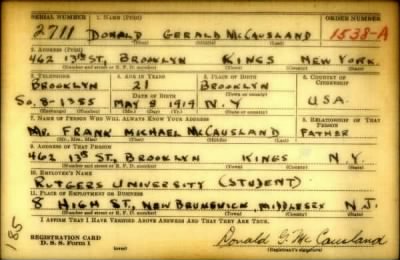 SERIAL NUMBER 1. NAME (Print) ORDER NUMBER
2711 DONALD GERALD McCAUSLAND 1538-A
(First) (Middle) (Last)
2. ADDRESS (Print)
462 13th ST, BROOKLYN KINGS NEW YORK.
(Number and street or R. F. D. number) (Town) (County) (State)
3. TELEPHONE 4. AGE IN YEARS 5. PLACE OF BIRTH 6. COUNTRY OF CITIZENSHIP
BROOKLYN 21 BROOKLYN
DATE OF BIRTH (Town or county)
So. 8-1355 MAY 8 1919 N.Y U.S.A.
(Exchange) (Number) (Mo.) (Day) (Yr.) (State or country)
7. NAME OF PERSON WHO WILL ALWAYS KNOW YOUR ADDRESS 8. RELATIONSHIP OF THAT PERSON
MR. FRANK MICHAEL McCAUSLAND FATHER
(Mr., Mrs., Miss) (First) (Middle) (Last)
9. ADDRESS OF THAT PERSON
462 13th ST, BROOKLYN KINGS N.Y.
(Number and street or R. F. D. number) (Town) (County) (State)
10. EMPLOYER'S NAME
RUTGERS UNIVERSITY (STUDENT)
11. PLACE OF EMPLOYMENT OR BUSINESS
8 HIGH ST, NEW BRUNSWICK, MIDDLESEX N.J.
(Number and street or R. F. D. number) (Town) (County) (State)
I AFFIRM THAT I HAVE VERIFIED ABOVE ANSWERS AND THAT THEY ARE TRUE.
185
REGISTRATION CARD
D. S. S. Form 1
Donald G. McCausland
(Registrant's signature)